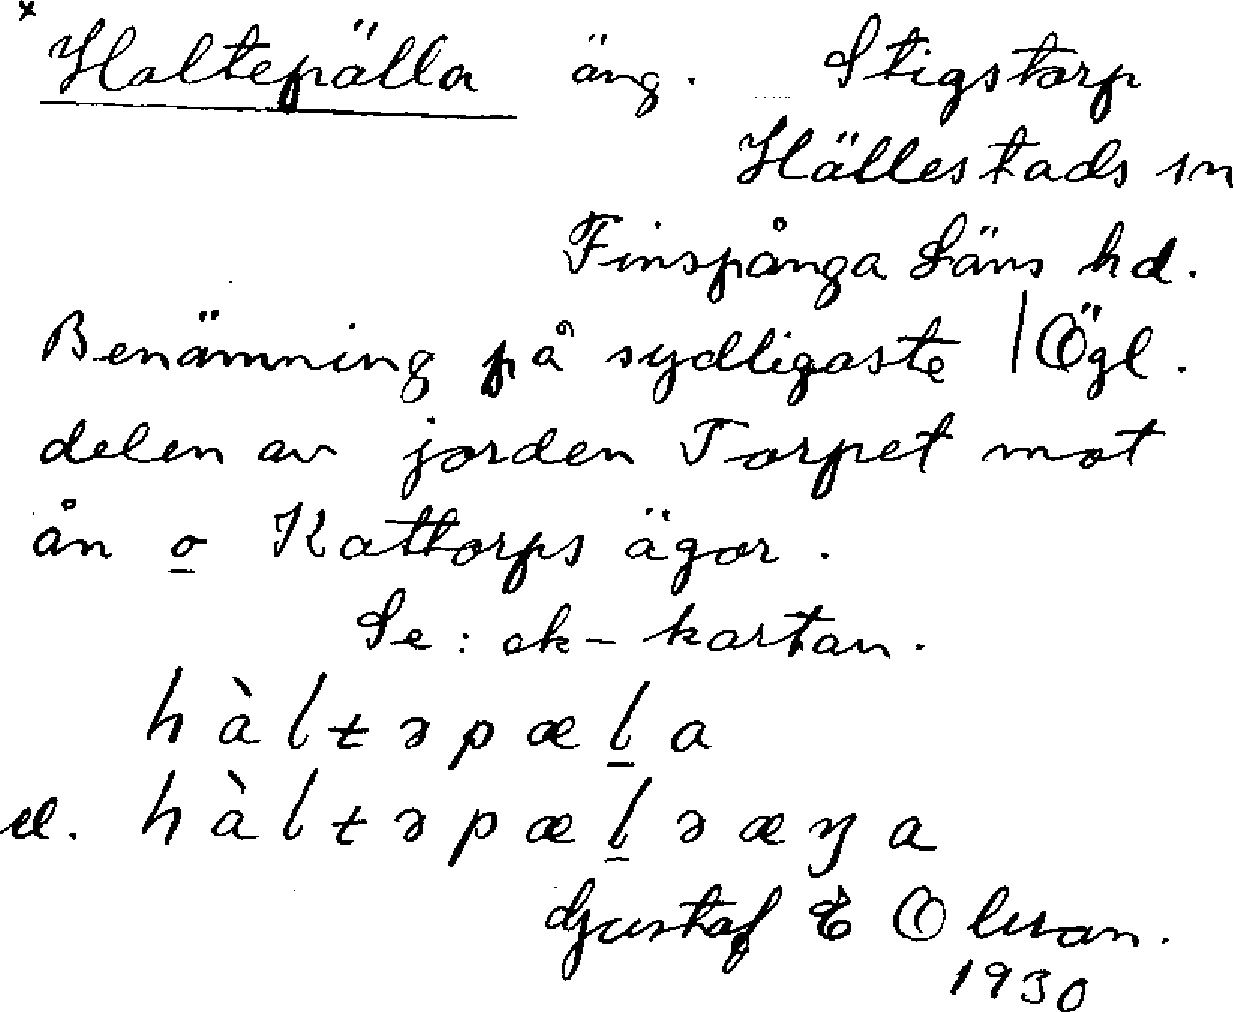 x Haltepälla äng. Stigstorp
Hällestads sn
Finspånga Läns hd.
Benämning på sydligaste | Ögl.
delen av jorden Torpet mot
ån o Kattorps ägor.
Se: ek-kartan.
hàltəpæla
el. hàltəpæləæŋa
Gustaf E Olsson.
1930